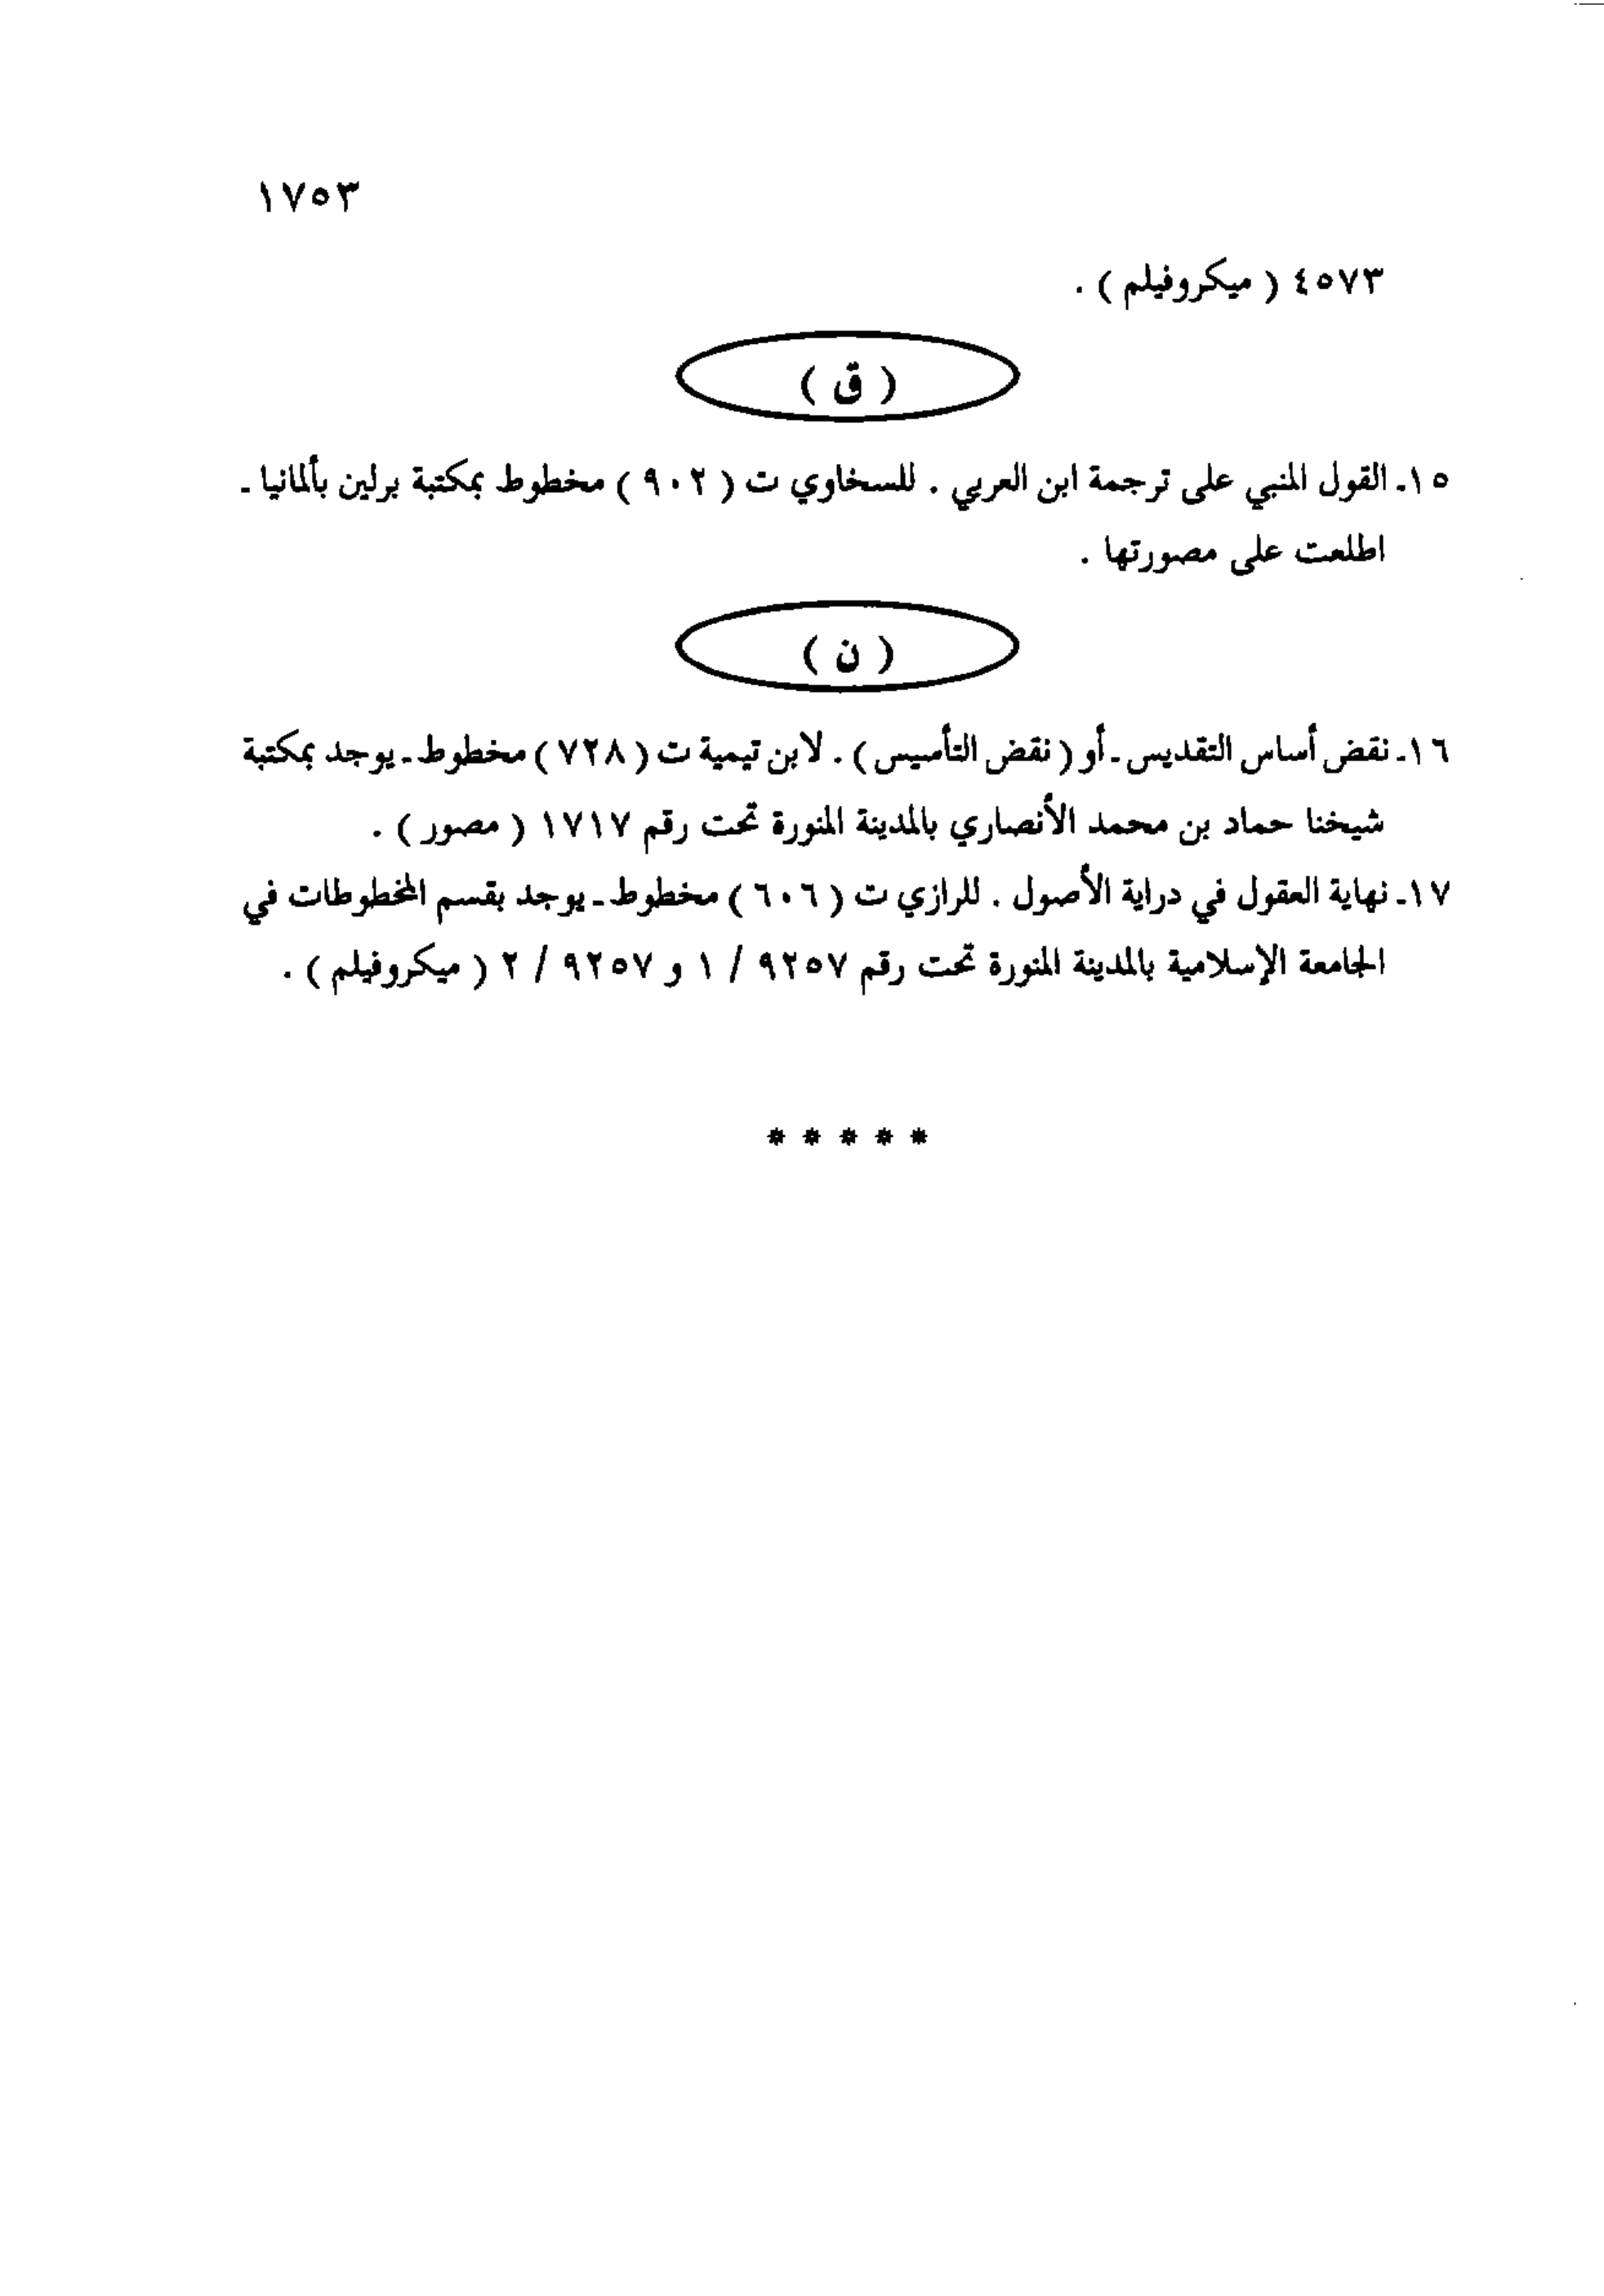 ١٧٥٣
٤٥٧٣ ( ميكروفيلم ) .
( ق )
١٥ـ القول المنبي على ترجمة ابن العربي . للسخاوي ت ( ٩٠٢ ) مخطوط بمكتبة برلين بألمانيا ـ
اطلعت على مصورتها .
( ن )
١٦ـ نقض أساس التقديس ـ أو ( نقض التأسيس ) . لابن تيمية ت ( ٧٢٨ ) مخطوط ـ يوجد بمكتبة
شيخنا حماد بن محمد الأنصاري بالمدينة المنورة تحت رقم ١٧١٧ ( مصور ) .
١٧ـ نهاية العقول في دراية الأصول . للرازي ت ( ٦٠٦ ) مخطوط ـ يوجد بقسم المخطوطات في
الجامعة الإسلامية بالمدينة المنورة تحت رقم ٩٢٥٧ / ١ و ٩٢٥٧ / ٢ ( ميكروفيلم ) .
* * * * *